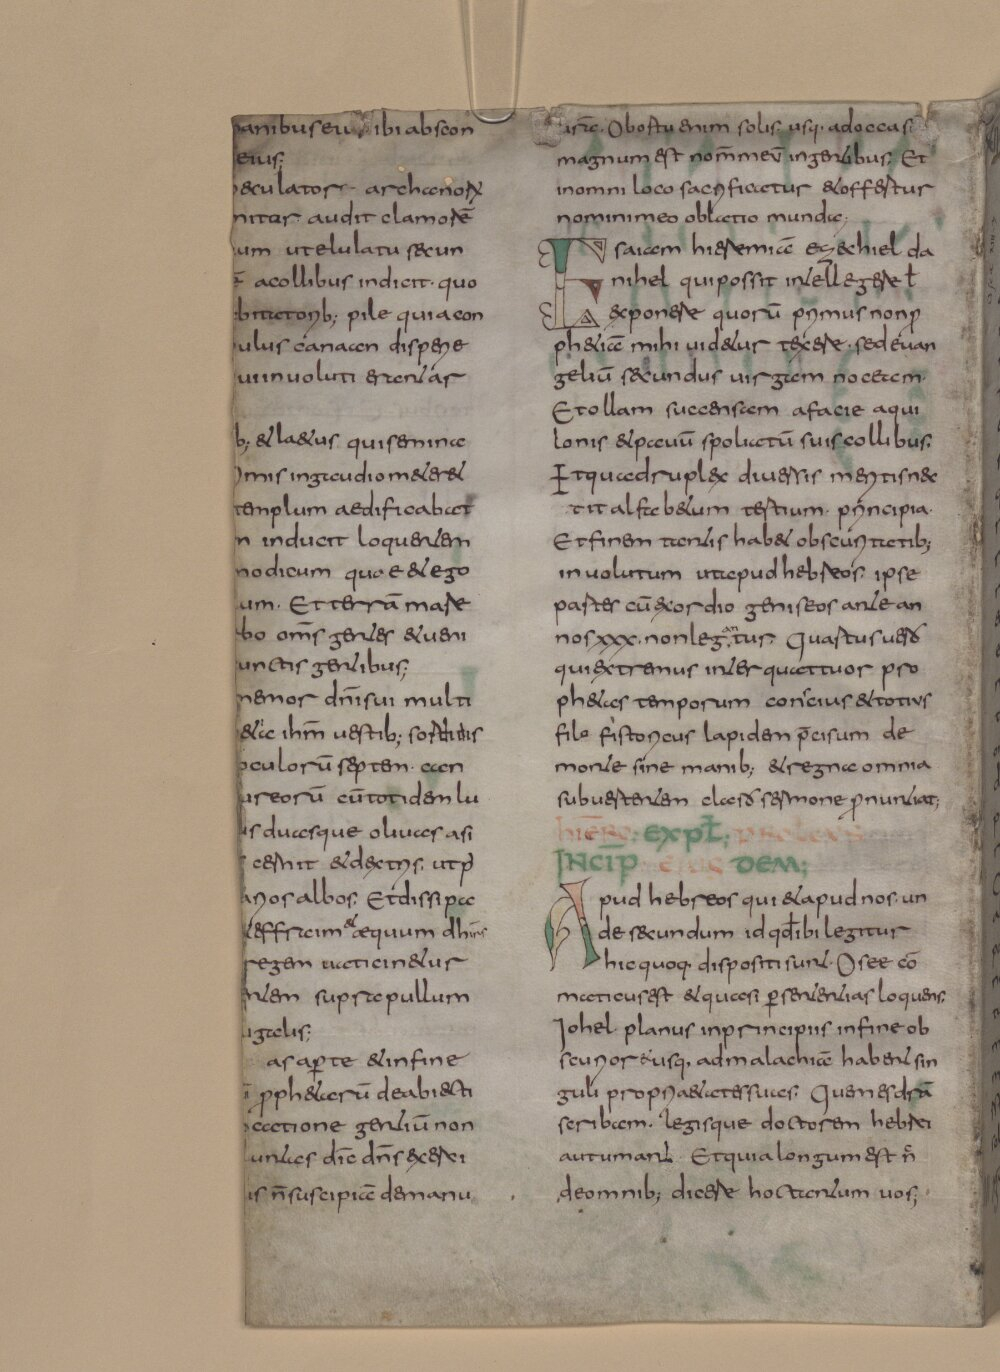 panibus eu ibi abscon
eius;
eculator. archanorū
nitur. audit clamorē
um ut elulatu secun
a collibus indicit. quo
bitatorib; pile quia con
ulus canaan disperie
ui involuti erant ar
b; & laetus qui semina
mis in gaudio met&
templum aedificabat
n inducit loquentem
modicum quoe & ego
um. Et terrā mare
bo om̄s gentes & veni
unctis gentibus;
memor dn̄i sui multi
eta ih̄m vestib; sordidis
oculorū septem. can
ureorū cū totidem lu
is duasque olivas a si
cernit & dextris. ut p
arios albos. Et dissipa
effraim & aequum dhirus
regem vaticinatur
entem supra pullum
ugalis;
as aparte & in fine
prophetarū de abiecti
catione gentiū non
untas dic̄ dn̄s exerci
is n̄ suscipiā de manu
usr̄a. Ob ortu enim solis. usq. ad occas̄
magnum est nom̄ meū in gentibus. Et
in omni loco sacrificatur & offertur
nomini meo oblatio munda;
Isaiam hieremiā ezechiel da
nihel qui possit intellegere ł
exponere quorū primus non p̄
phetiā mihi videtur texere. sed evan
geliū secundus virgam noceam.
Et ollam succensam a facie aqui
lonis & pavuū spoliatū suis collibus.
Et quadruplex diversis metris nex
tit alfabetum tertium. principia.
Et finem tantis habet obscuritatib;
involutum ut apud hebreos. ipse
partes cū exordio geniseos ante an
nos xxx. non legantus. Quartus verō
qui extremus inter quattuor pro
phetas temporum conscius & totius
filo fistoricus lapidem p̄cisum de
monte sine manib; & regna omnia
subvertentem clarō sermone p̄nuntiat;
EXPŁ;
INCIP̄ DEM;
Apud hebreos qui & apud nos. un
de secundum id qđ ibi legitur
hic quoq. dispositi sunt. Osee cō
maticus est & quasi p̄ sententias loquens.
Johel planus in principiis in fine ob
scurior & usq. ad malachiā habent sin
guli propria & aetates suas. Quem esdrā
scribam. legisque doctorem hebrei
autumant. Et quia longum est n̄
de omnib; dicere hoc tantum vos;